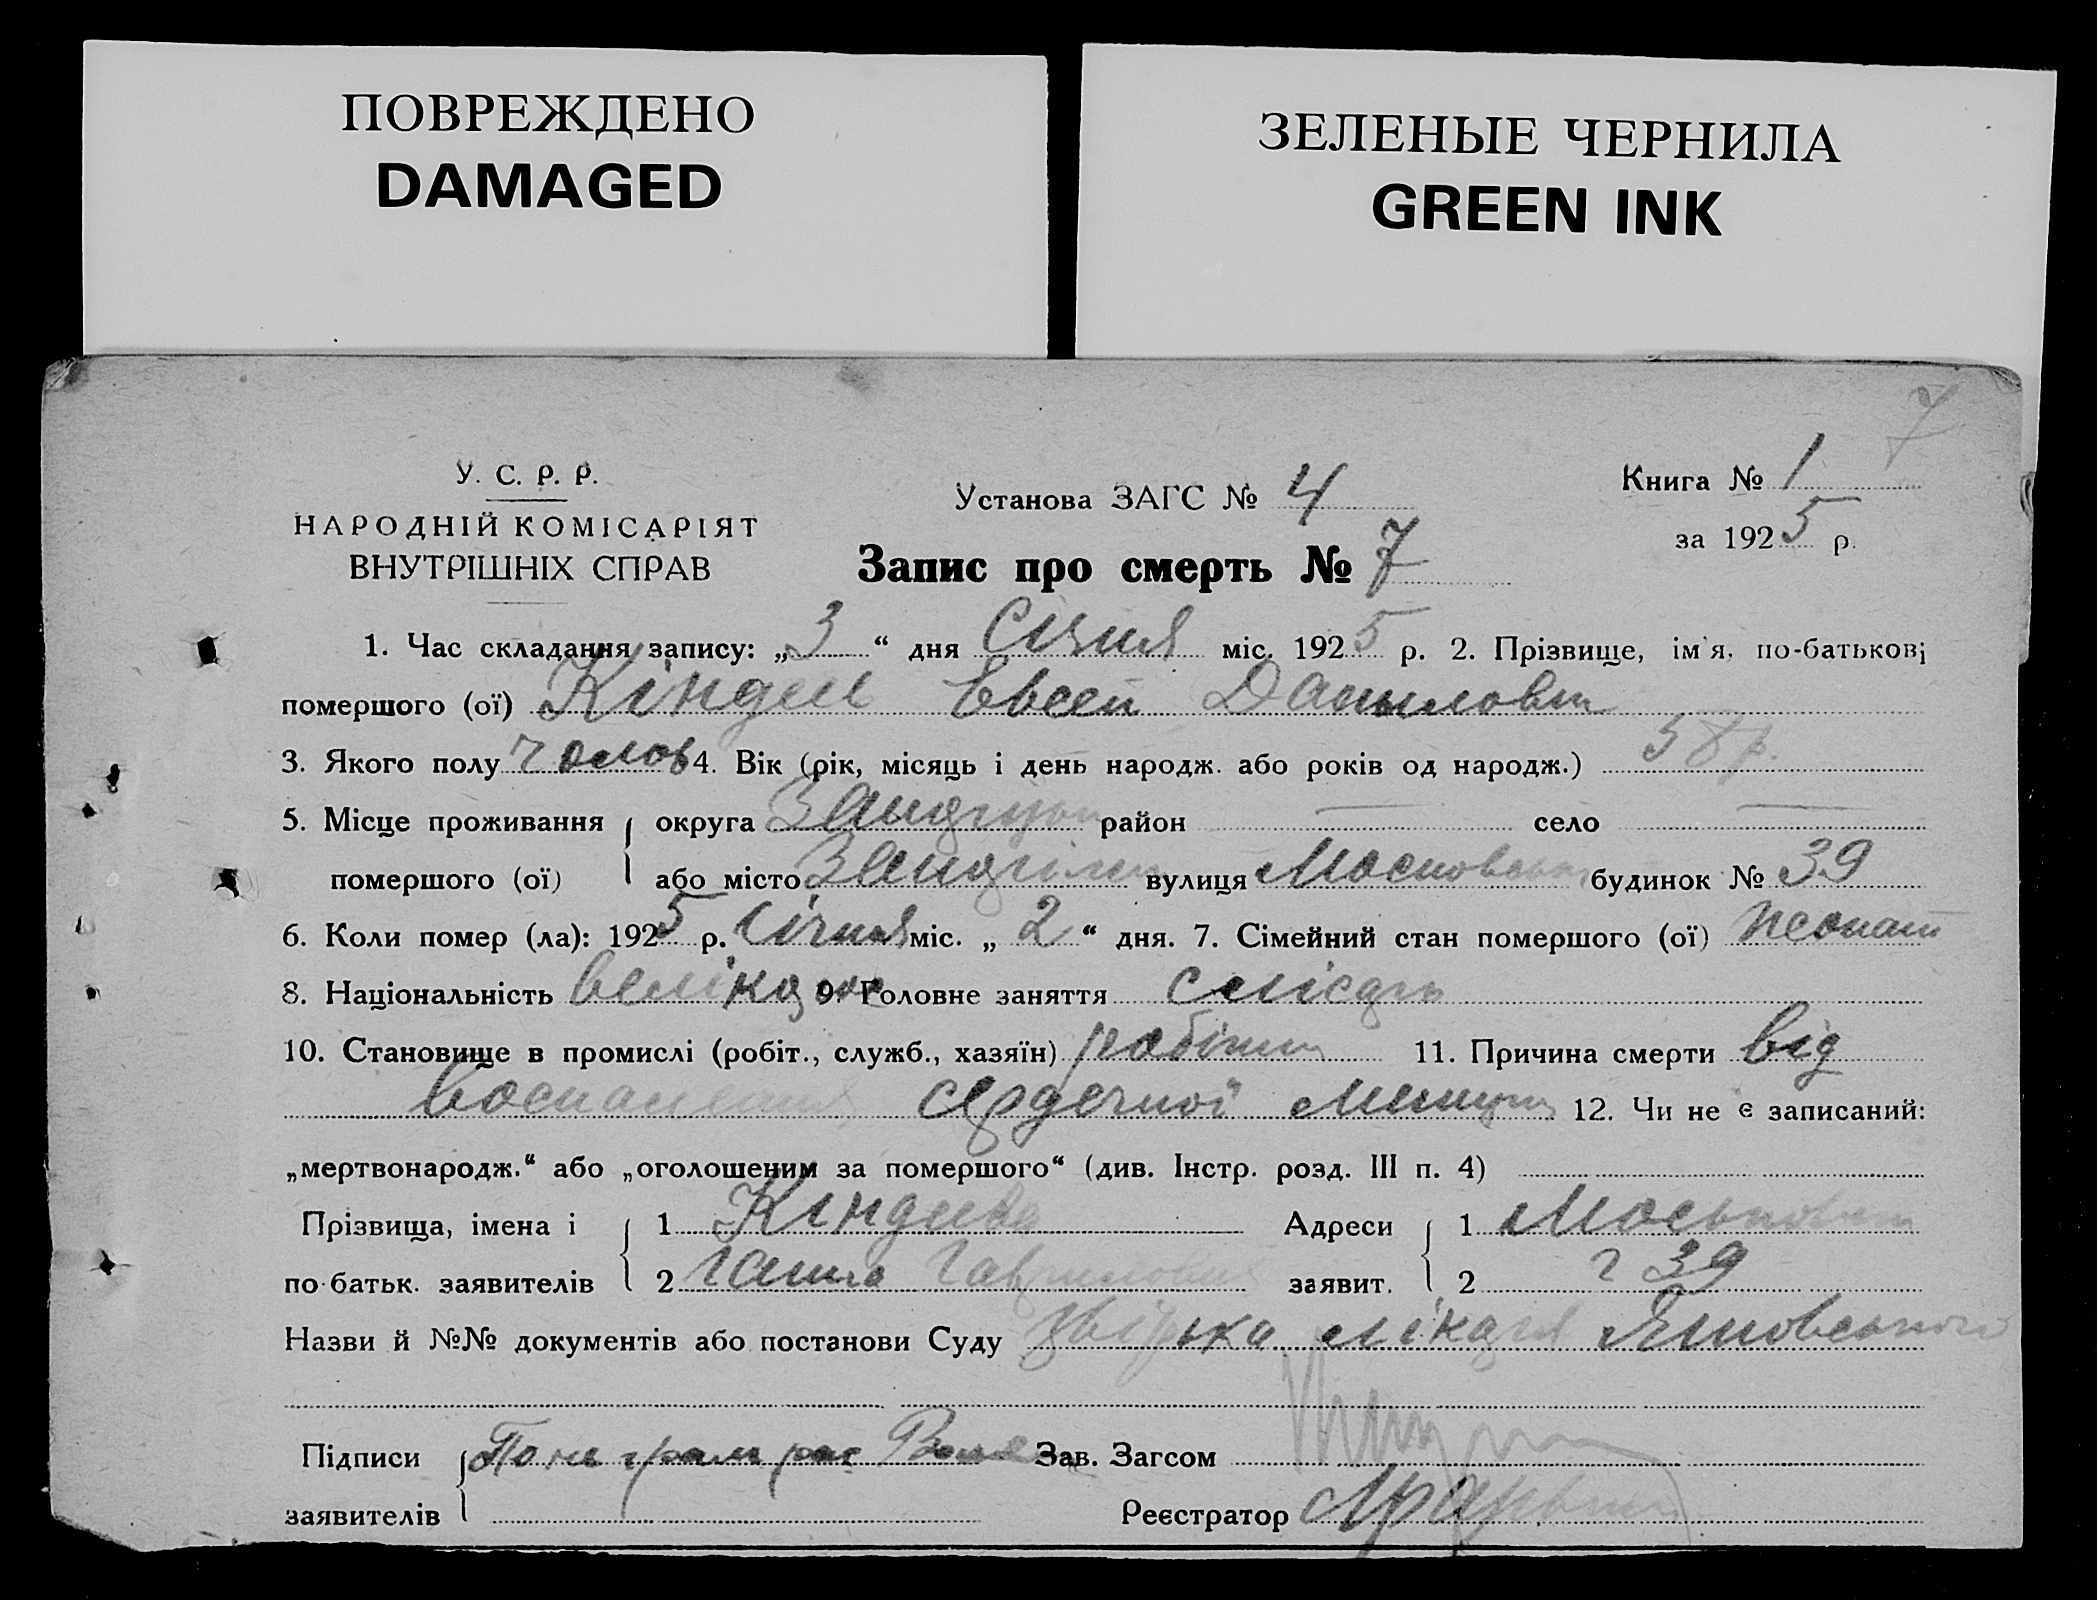 ПОВРЕЖДЕНО
DAMAGED
ЗЕЛЕНЫЕ ЧЕРНИЛА
GREEN INK
7
У. С. Р. Р.
НАРОДНІЙ КОМІСАРІЯТ
ВНУТРІШНІХ СПРАВ
Установа ЗАГС № 4
Книга № 1
за 1925 р.
Запис про смерть № 7
1. Час складання запису: „3“ дня Січня міс. 1925 р. 2. Прізвище, ім'я, по-батькові
помершого (ої) Кіндел Евсей Данилович
3. Якого полу чолов 4. Вік (рік, місяць і день народж. або років од народж.) 58 р.
5. Місце проживання округа район село
помершого (ої) або місто вулиця Московська будинок № 39
6. Коли помер (ла): 1925 р. Січня міс. „2“ дня. 7. Сімейний стан помершого (ої) жонат
8. Національність велікорос 9. Головне заняття слюсарь
10. Становище в промислі (робіт., служб., хазяїн) робітник 11. Причина смерти від
воспаления сердечної мишци 12. Чи не є записаний:
„мертвонародж.“ або „оголошеним за помершого“ (див. Інстр. розд. III п. 4)
Прізвища, імена і 1 Адреси 1 Московська
по-батьк. заявителів 2 Ганна Гавриловна заявит. 2 39
Назви й №№ документів або постанови Суду лікаря
Підписи По не грам рос Зав. Загсом
заявителів Реєстратор